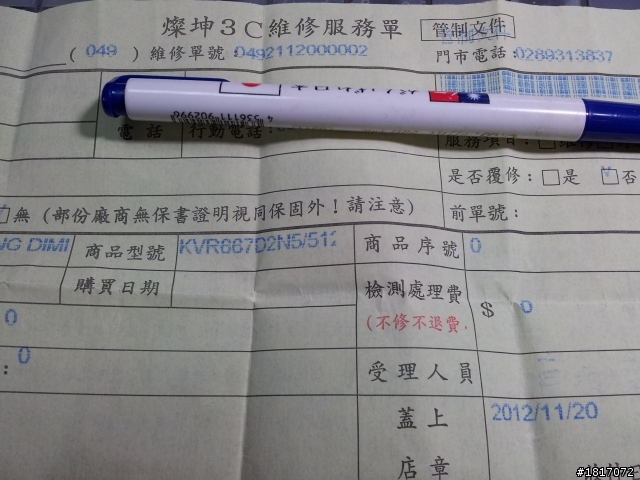 燦坤3C維修服務單 管制文件
(049) 維修單號:0492112000002 門市電話:0289313837
がんばれ日本
電話 行動電話: 服務項目:
是否覆修:□是 □否
無(部份廠商無保書證明視同保固外!請注意) 前單號:
NG DIMI 商品型號 KVR667D2N5/512 商品序號 0
購買日期 檢測處理費 $ 0
(不修不退費
0
: 0
受理人員
蓋上 2012/11/20
店章
#1817072